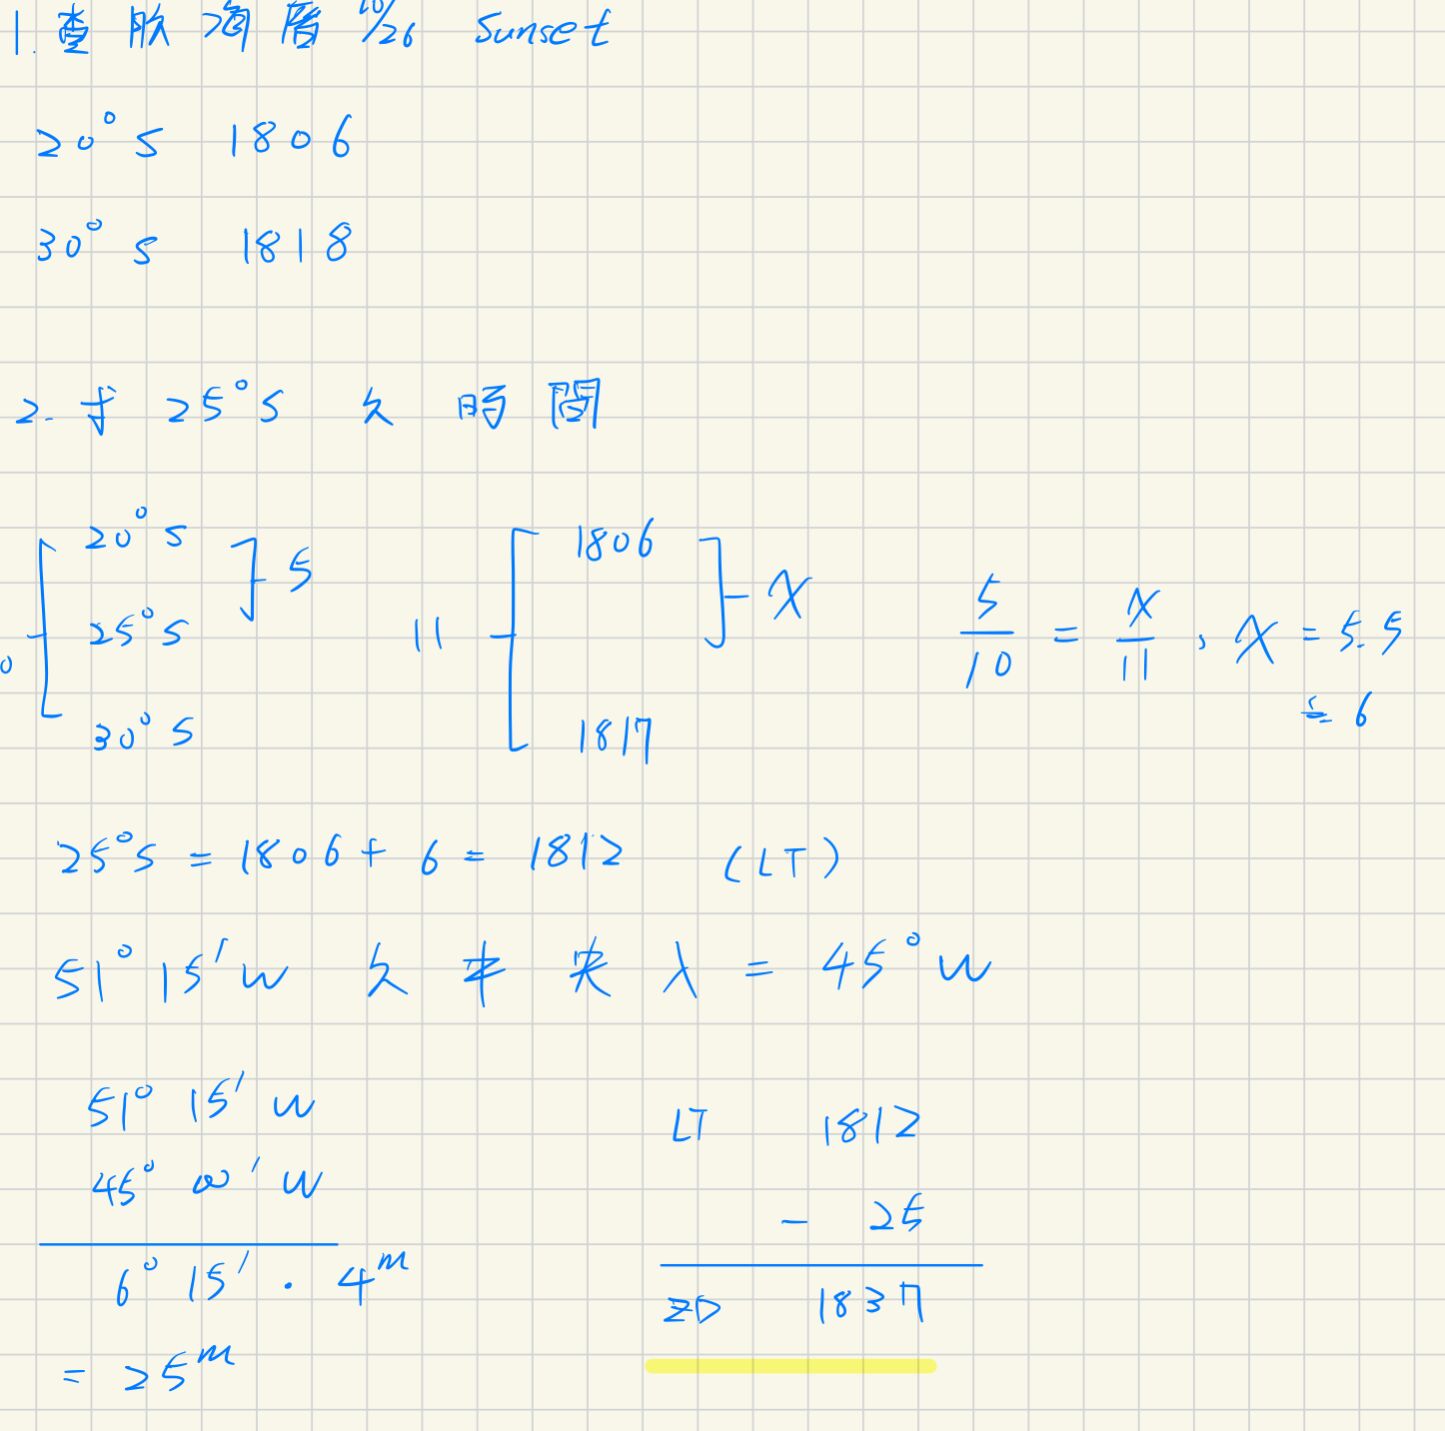 1. 查 航海曆 10/26 Sunset
20° S 1806
30° S 1818
2. 求 25° S 之 時間
20° S ] 5 1806 ] x
25° S 11 5/10 = x/11 , x = 5.5
0 ≒ 6
30° S 1817
25° S = 1806 + 6 = 1812 (LT)
51° 15' W 之 中央 λ = 45° W
51° 15' W LT 1812
45° 00' W - 25
6° 15' · 4ᵐ ZD 1837
= 25ᵐ